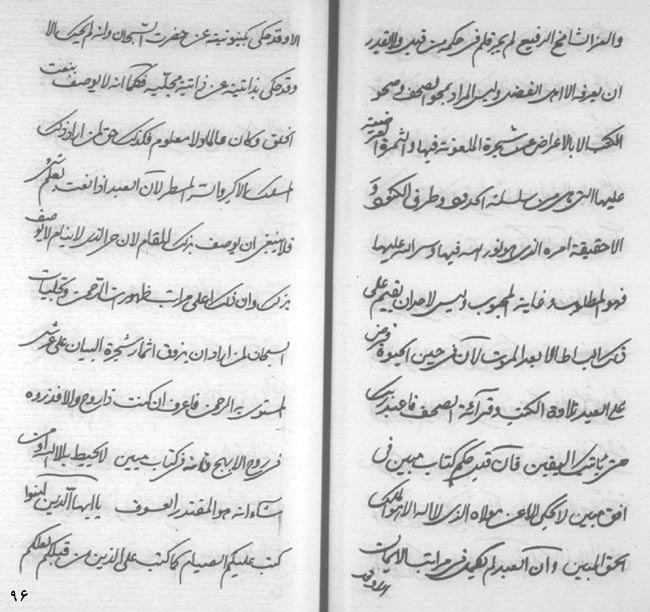 والعز الشامخ الرفيع لم يجر قلم في حكمه من قبل ولا يقدر
ان يعرفه الا اهل الفضل وليس المراد بمحو الصحف وصحو
الكتب الا بالاعراض عن شجرة الملعونة فيها والثمرة
عليها التي هي من سلسلة الحدود وطرف
الا حقيقة امره الذي هو نور الله فيها وسر الله عليها
فهو المطلوب وغاية المحبوب وليس لاحد ان يقيم على
ذلك البساط الا بعد الموت لان في حين الحيوة فرض
على العبد تلاوة الكتب وقرائة الصحف فاعبد ربك
حتى يأتيك اليقين فان حكم كتاب مبين في
افق مبين لا يحكي الا عن مولاه الذي لا اله الا هو الملك
الحق المبين وان العبد لم يكمل في مراتب الايمان
الا وقد
الا وقد حكى بكينونيته عن حضرت السبحان وانه لم يحك الا
وقد حكى بذاتيته عن ذاتية مجليه فكما انه لا يوصف بنعت
الخلق وكان عالما ولا معلوم فكذلك حق لمن اراد ذلك
المسلك الاكبر والسر المسطر لان العبد اذا نعت بعلم
فلا ينبغي ان يوصف بذلك المقام لان الذي لا ينام لا يوصف
بذلك وان ذلك اعلى مراتب ظهورات الرحمن وتجليات
السبحان لمن اراد ان يذوق اثمار شجرة البيان على عرش
المستوى به الرحمن فاعرف ان كنت ذا روح والا فذروه
في روح الابهج في كتاب مبين لا يحيط
شاء انه هو المقتدر العطوف يا ايها الذين آمنوا
كتب عليكم الصيام كما كتب على الذين من قبلكم لعلكم
٩۶